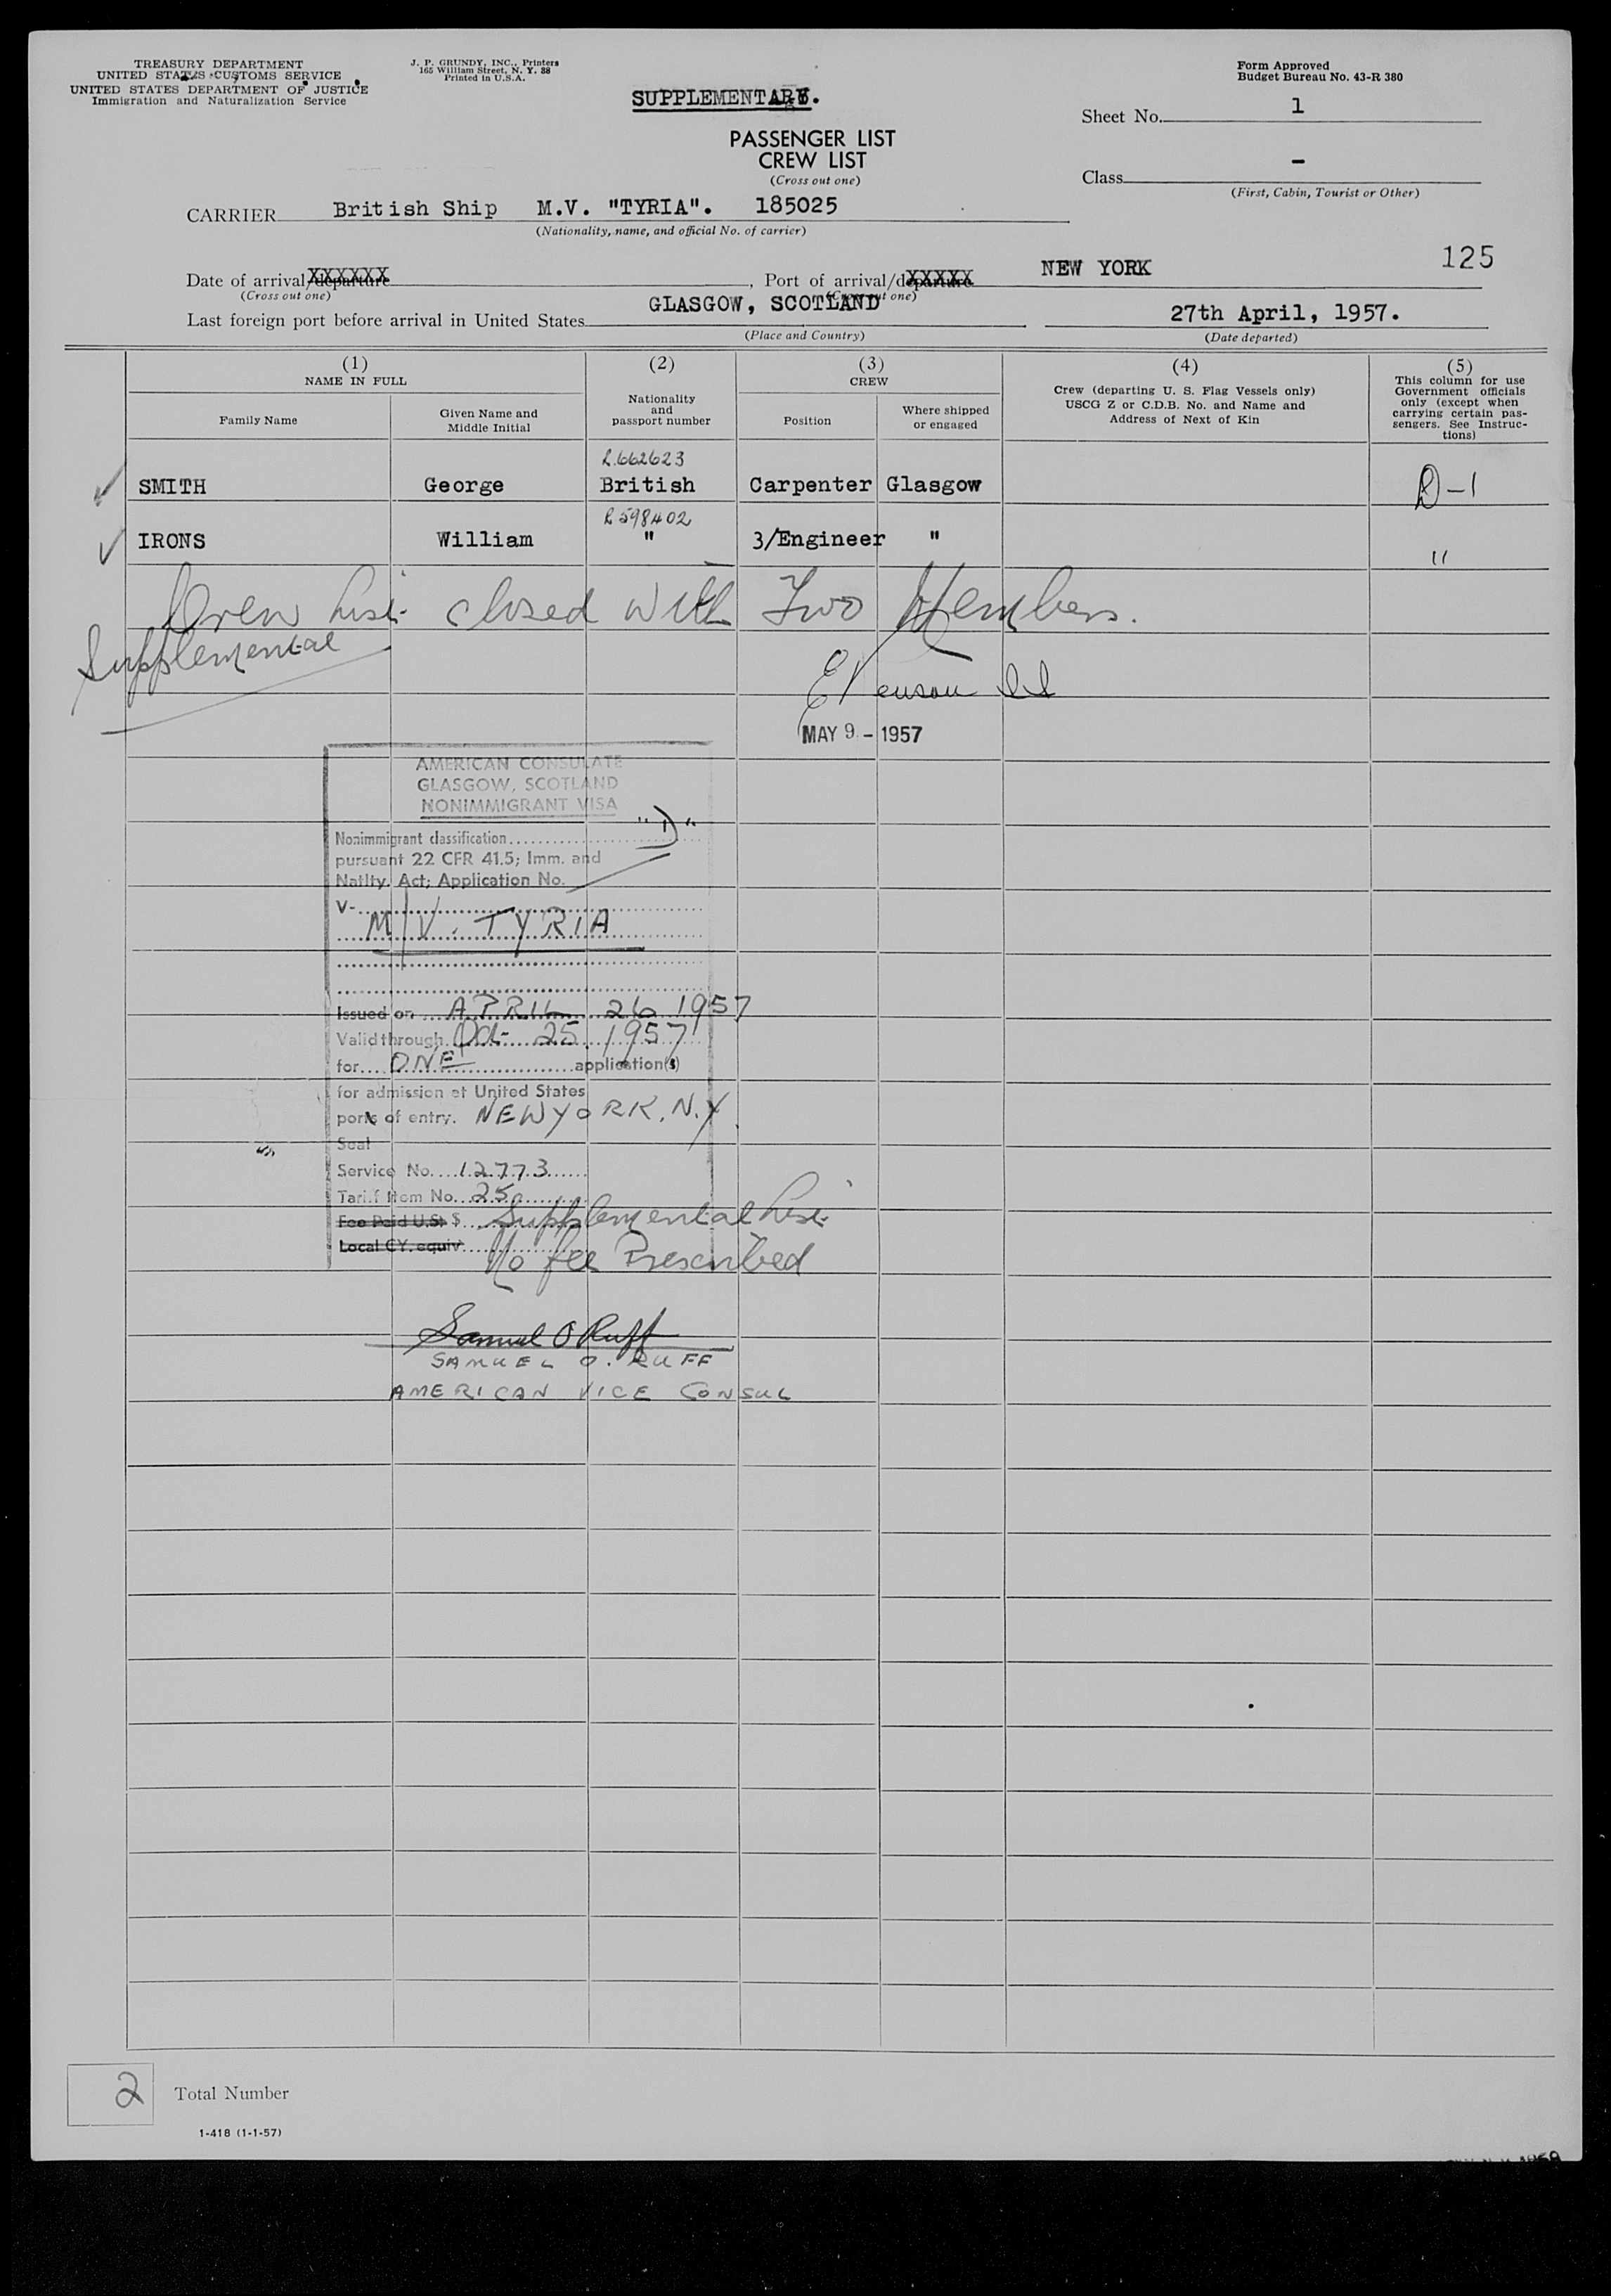 TREASURY DEPARTMENT
UNITED STATES CUSTOMS SERVICE
UNITED STATES DEPARTMENT OF JUSTICE
Immigration and Naturalization Service
J. P. GRUNDY, INC., Printers
165 William Street, N. Y. 38
Printed in U.S.A.
SUPPLEMENTARY.
PASSENGER LIST
CREW LIST
(Cross out one)
Form Approved
Budget Bureau No. 43-R 380
Sheet No. 1
Class -
(First, Cabin, Tourist or Other)
CARRIER British Ship M.V. "TYRIA". 185025
(Nationality, name, and official No. of carrier)
125
Date of arrival/departure XXXXXX, Port of arrival/departure XXXXX NEW YORK
(Cross out one) (Cross out one)
Last foreign port before arrival in United States GLASGOW, SCOTLAND 27th April, 1957.
(Place and Country) (Date departed)
(1) (2) (3) (4) (5)
NAME IN FULL
Family Name
Given Name and
Middle Initial
Nationality
and
passport number
CREW
Position
Where shipped
or engaged
Crew (departing U. S. Flag Vessels only)
USCG Z or C.D.B. No. and Name and
Address of Next of Kin
This column for use
Government officials
only (except when
carrying certain pas-
sengers. See Instruc-
tions)
R.662623
SMITH George British Carpenter Glasgow D-1
R 598402
IRONS William " 3/Engineer " "
Crew List closed with Two Members.
Supplemental
MAY 9 - 1957
AMERICAN CONSULATE
GLASGOW, SCOTLAND
NONIMMIGRANT VISA
Nonimmigrant classification "D"
pursuant 22 CFR 41.5; Imm. and
Natlty. Act; Application No.
V-
M/V. TYRIA
Issued on APRIL 26 1957
Valid through Oct 25 1957
for ONE application(s)
for admission at United States
ports of entry. NEW YORK, N.Y.
Seal
Service No. 12773
Tariff Item No. 25
Fee Paid U.S. $ Supplemental List
Local CY. equiv. No fee Prescribed
Samuel O Ruff
SAMUEL O. RUFF
AMERICAN VICE CONSUL
2 Total Number
1-418 (1-1-57)